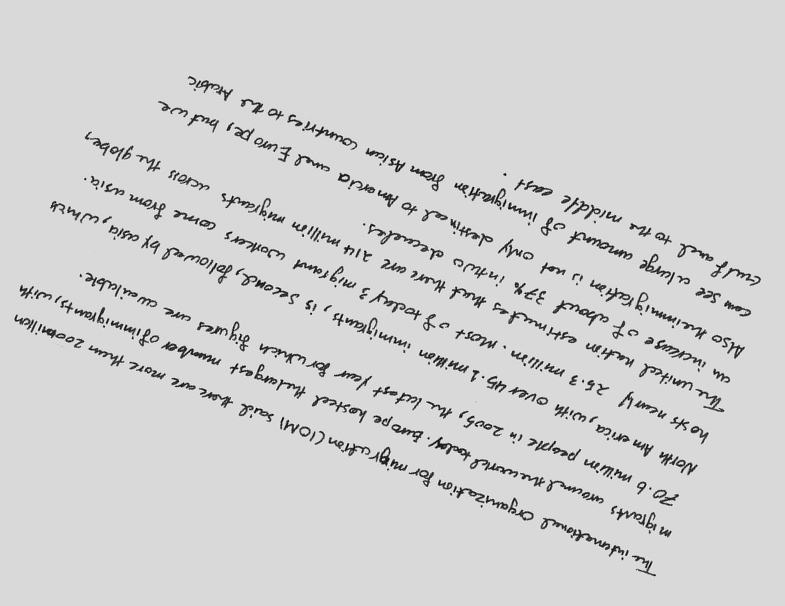 The international organization for migration (IOM) said there are more than 200 million
migrants around the world today. Europe hosted the largest number of immigrants, with
70.6 million people in 2005, the latest year for which figures are available.
North America, with over 45.1 million immigrants, is second, followed by asia, which
hosts nearly 25.3 million. Most of today's migrant workers come from asia.
The united nation estimates that there are 214 million migrants across the globe,
an increase of about 37% in two decades.
Also the immigration is not only destined to America and Europe, but we
can see a large amount of immigration from Asian countries to the Arabic
Gulf and to the middle east.